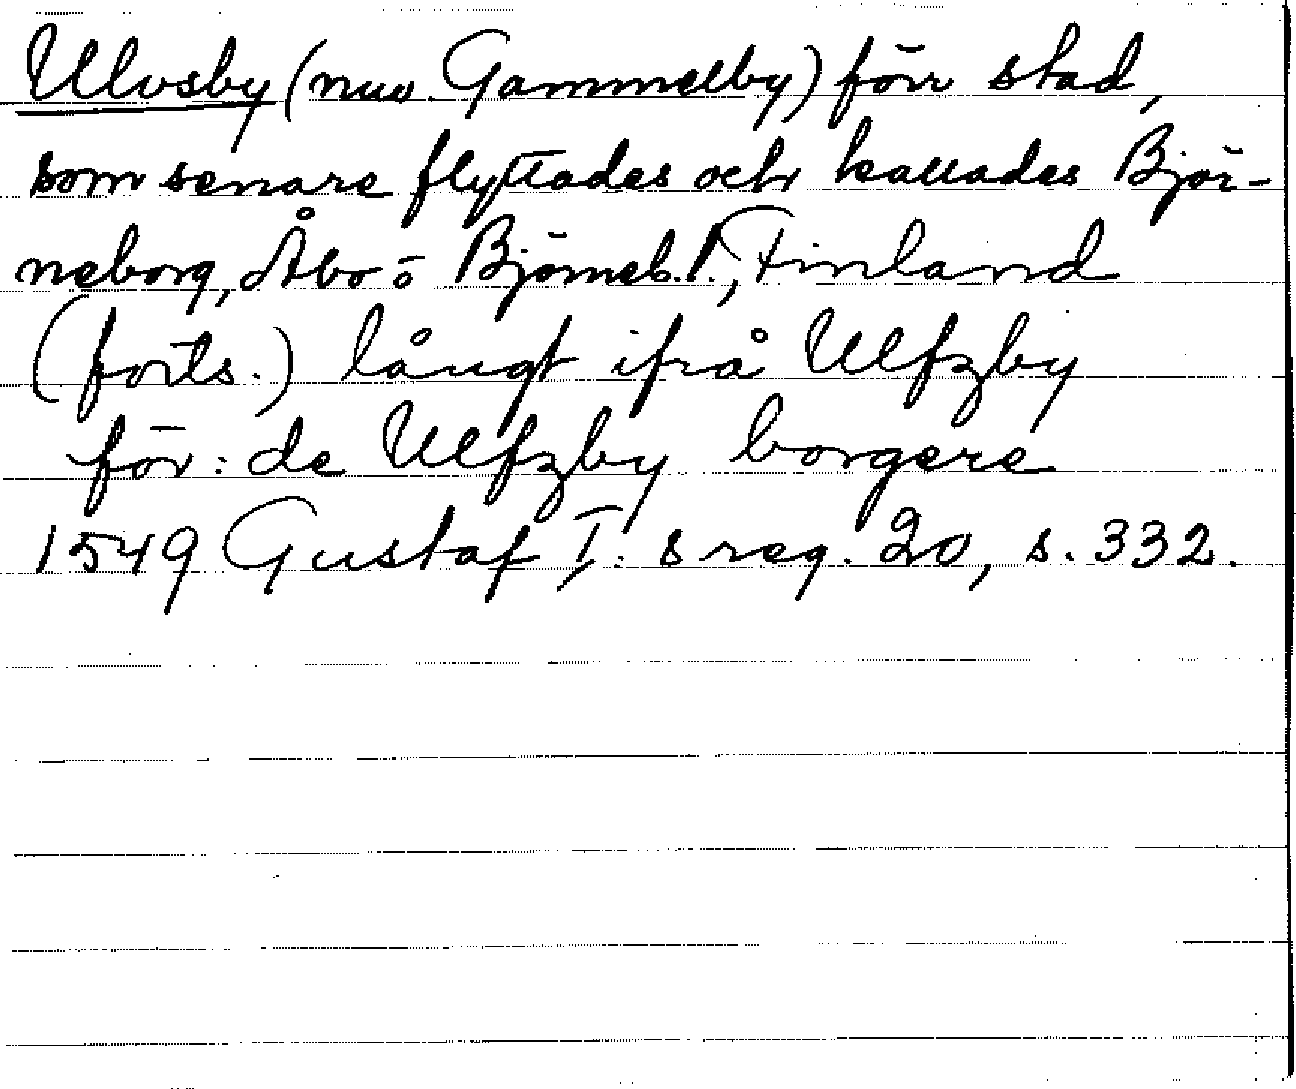 Ulvsby (nuv. Gammelby) förr stad,
som senare flyttades och kallades Björ-
neborg, Åbo ö Björneb. l., Finland
(forts.) långt ifrå Ulfzby
för: de Ulfzby borgere
1549 Gustaf I:s reg. 20, s. 332.